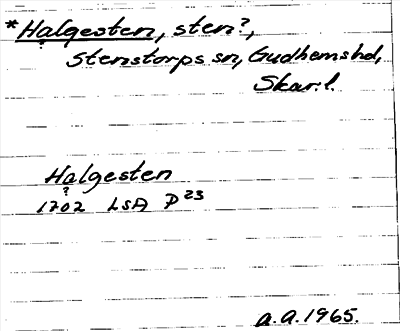 *Halgesten, sten?,
Stenstorps sn, Gudhemshd,
Skar.l.
Halgesten
?
1702 LSA P 23
a.a.1965.